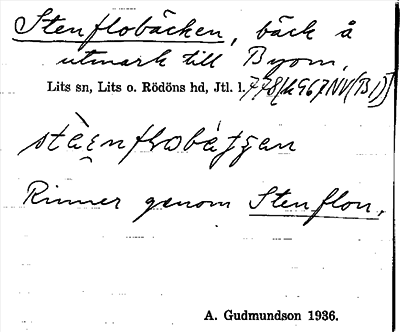 Stenflobäcken, bäck å
utmark till Byom,
Lits sn, Lits o. Rödöns hd, Jtl. l.
Rinner genom Stenflon.
A. Gudmundson 1936.